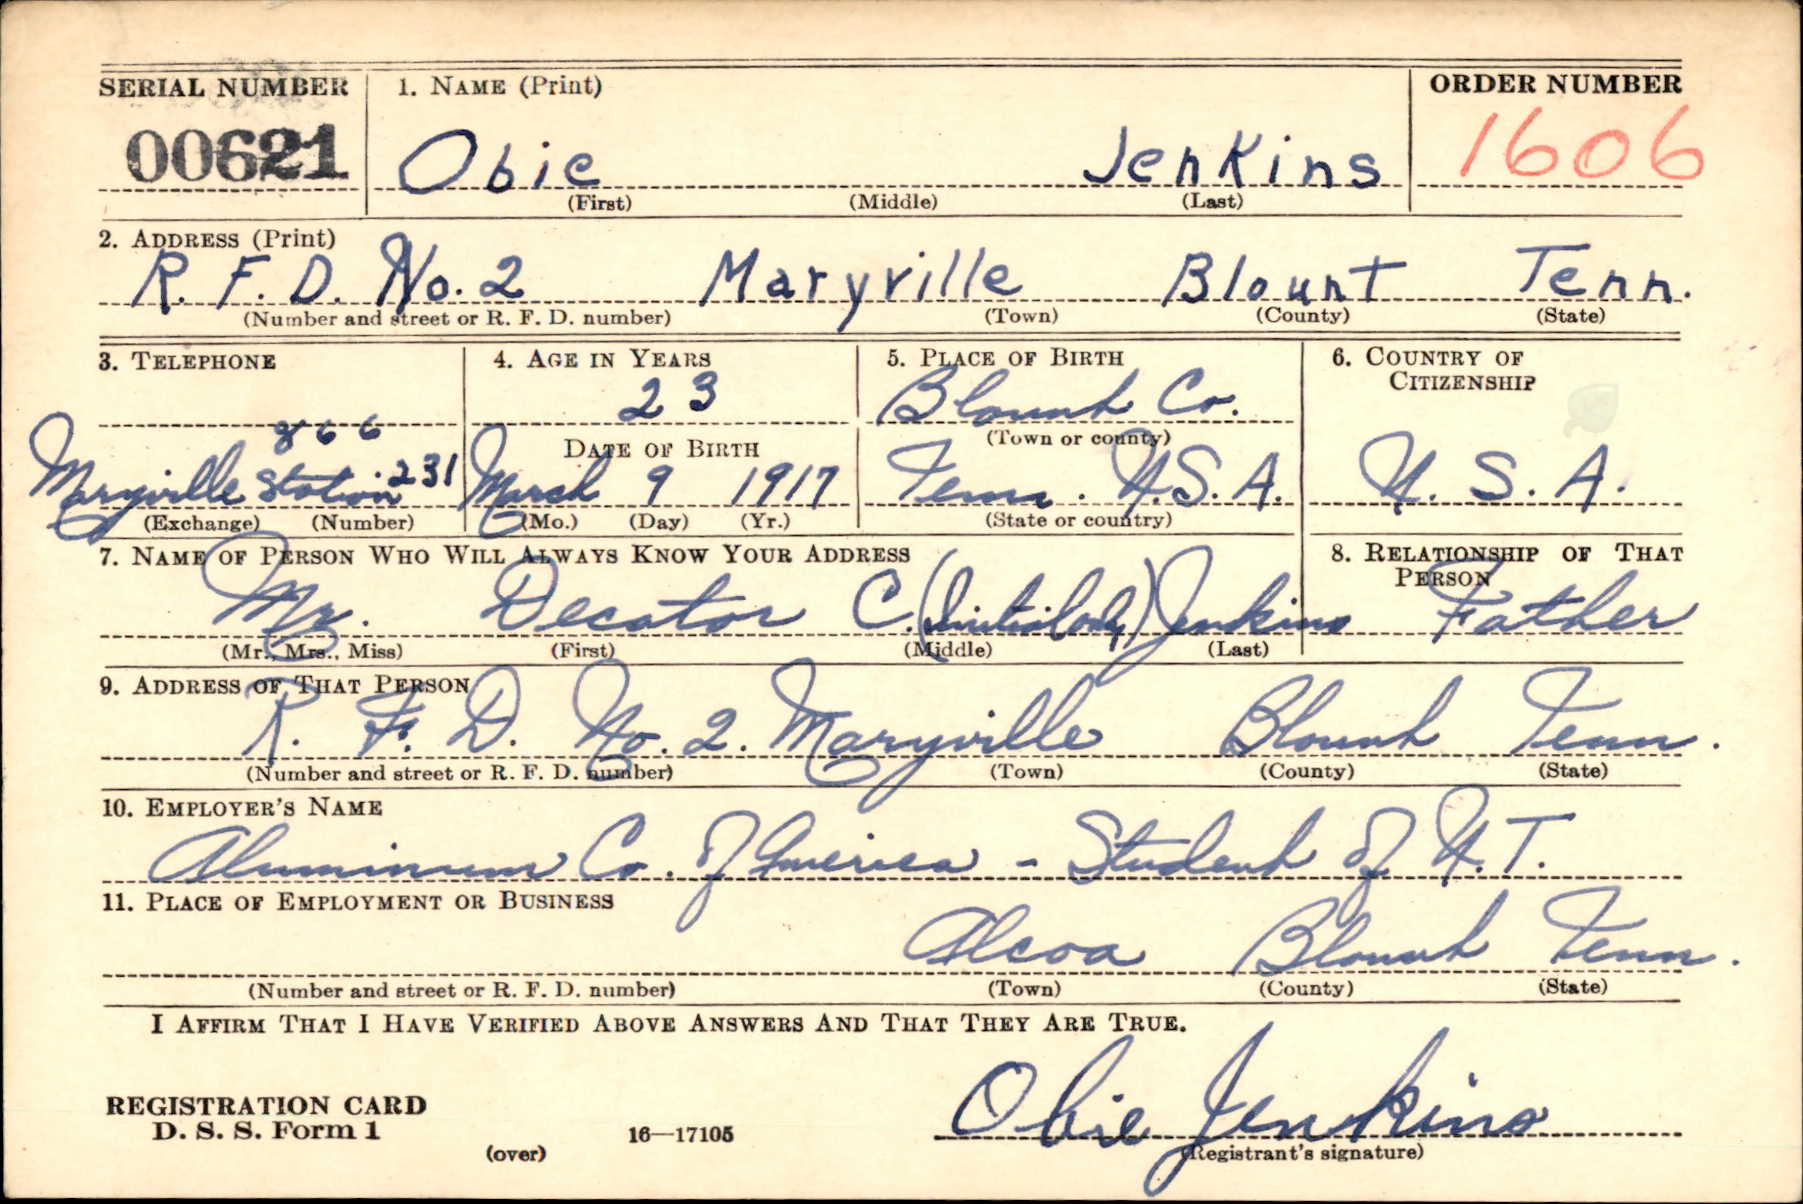 SERIAL NUMBER 1. NAME (Print) ORDER NUMBER
00621 Obie Jenkins 1606
(First) (Middle) (Last)
2. ADDRESS (Print)
R. F. D. No. 2 Maryville Blount Tenn.
(Number and street or R. F. D. number) (Town) (County) (State)
3. TELEPHONE 4. AGE IN YEARS 5. PLACE OF BIRTH 6. COUNTRY OF
CITIZENSHIP
23 Blount Co.
866 DATE OF BIRTH (Town or county)
Maryville Station 231 March 9 1917 Tenn. U.S.A. U. S. A.
(Exchange) (Number) (Mo.) (Day) (Yr.) (State or country)
7. NAME OF PERSON WHO WILL ALWAYS KNOW YOUR ADDRESS 8. RELATIONSHIP OF THAT
PERSON
Mr. Decator C. (Initial only) Jenkins Father
(Mr., Mrs., Miss) (First) (Middle) (Last)
9. ADDRESS OF THAT PERSON
R. F. D. No. 2. Maryville Blount Tenn.
(Number and street or R. F. D. number) (Town) (County) (State)
10. EMPLOYER'S NAME
Aluminum Co. of America - Student of U.T.
11. PLACE OF EMPLOYMENT OR BUSINESS
Alcoa Blount Tenn.
(Number and street or R. F. D. number) (Town) (County) (State)
I AFFIRM THAT I HAVE VERIFIED ABOVE ANSWERS AND THAT THEY ARE TRUE.
Obie Jenkins
REGISTRATION CARD
D. S. S. Form 1 16—17105
(over) (Registrant's signature)